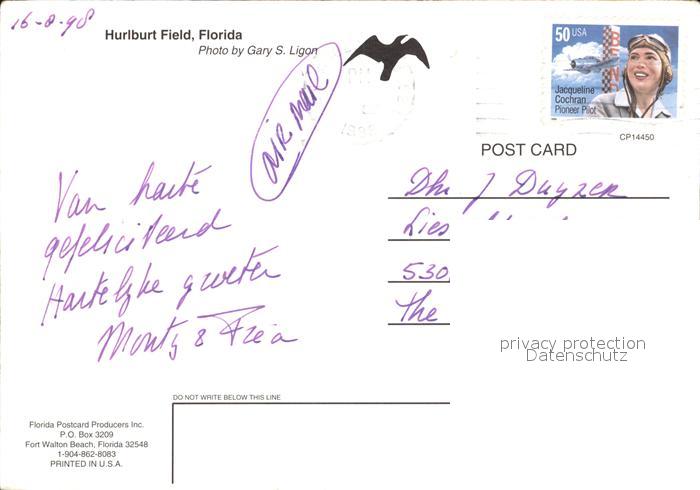 16-8-98
Hurlburt Field, Florida
Photo by Gary S. Ligon
air mail
50 USA
Jacqueline
Cochran
Pioneer Pilot
CP14450
POST CARD
Van harte
gefeliciteerd
Hartelijke groeten
Monty & Fréa
Dhr J Duyzer
Lies
530
The
privacy protection
Datenschutz
DO NOT WRITE BELOW THIS LINE
Florida Postcard Producers Inc.
P.O. Box 3209
Fort Walton Beach, Florida 32548
1-904-862-8083
PRINTED IN U.S.A.